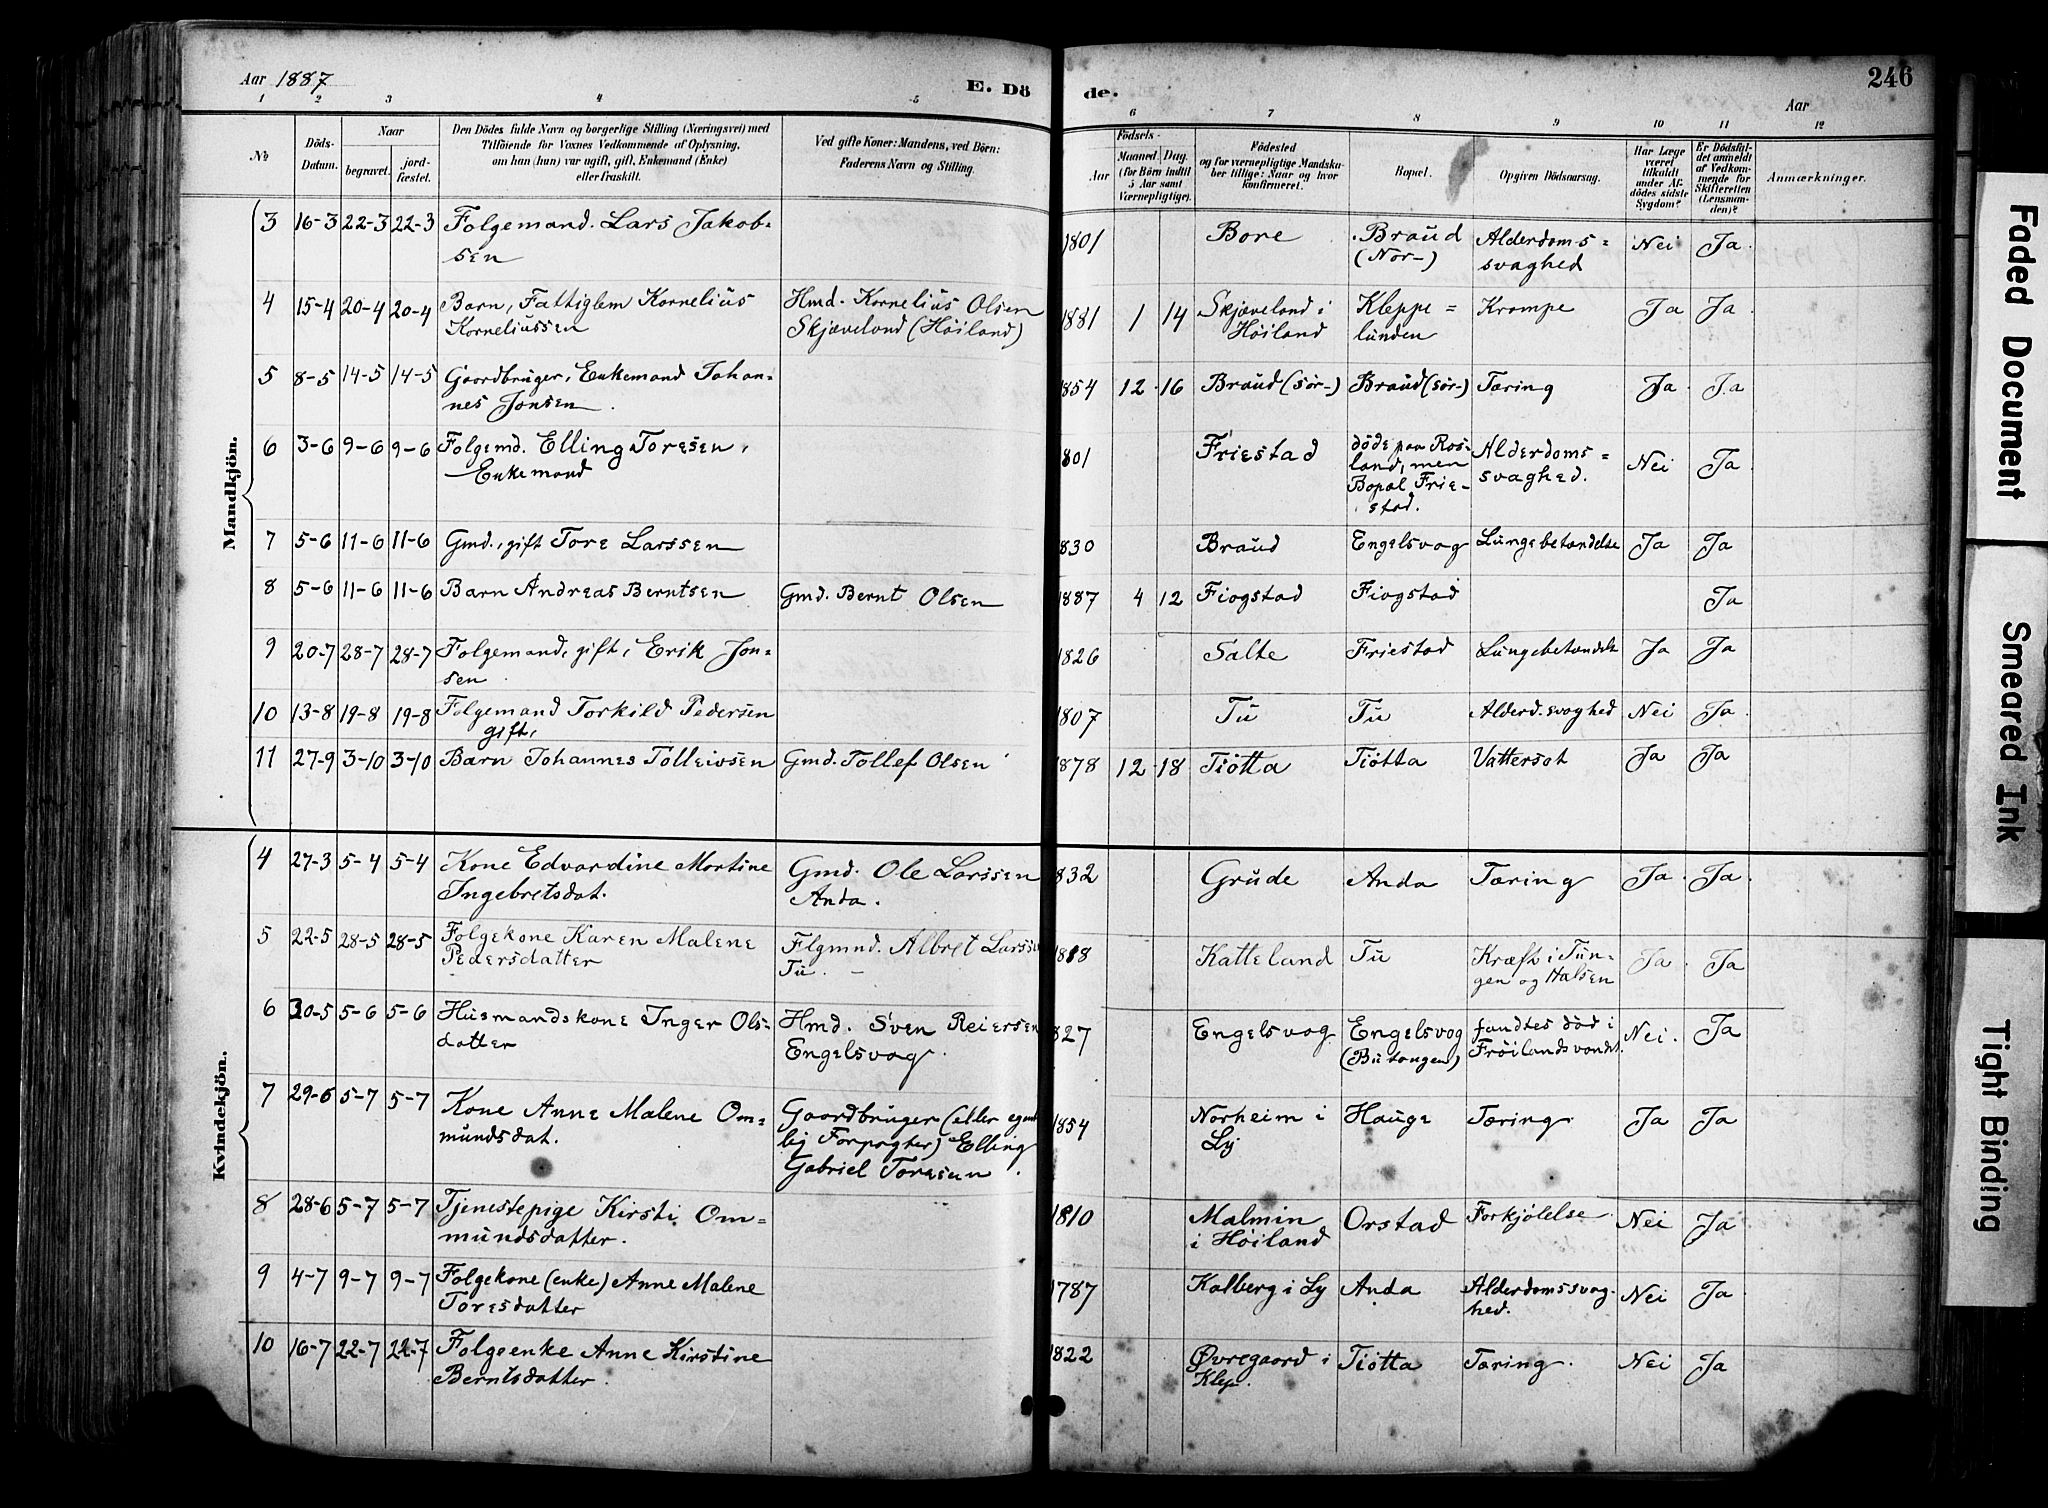 Aar 1887
E. Dö
de.
246
Aar
1 2 3 4 5 6 7 8 9 10 11 12
№
Döds-
Datum.
Naar
begravet.
jord-
fæstet.
Den Dödes fulde Navn og borgerlige Stilling (Næringsvei) med
Tilföiende for Voxnes Vedkommende af Oplysning,
om han (hun) var ugift, gift, Enkemand (Enke)
eller fraskilt.
Ved gifte Koner: Mandens, ved Börn:
Faderens Navn og Stilling.
Födsels-
Aar
Maaned.
Dag.
(for Börn indtil
5 Aar samt
Værnepligtige).
Födested
og for værnepligtige Mandska-
ber tillige: Naar og hvor
konfirmeret.
Bopæl.
Opgiven Dödsaarsag.
Har Læge
været
tilkaldt
under Af-
dödes sidste
Sygdom?
Er Dödsfal-
det anmeldt
af Vedkom-
mende for
Skifteretten
(Lensman-
den)?
Anmærkninger.
Mandkjön.
3 16-3 22-3 22-3 Folgemand. Lars Jakob-
sen
1801 Bore Braud
(Nor-) Alderdoms=
svaghed Nei Ja
4 15-4 20-4 20-4 Barn, Fattiglem Kornelius
Korneliussen
Hmd. Kornelius Olsen
Skjæveland (Høiland)
1881 1 14 Skjæveland i
Høiland Kleppe=
lunden Krampe Ja Ja
5 8-5 14-5 14-5 Gaardbruger, Enkemand Johan-
nes Jonsen.
1854 12 16 Braud (sør-) Braud (sør-) Tæring Ja Ja
6 3-6 9-6 9-6 Folgemd. Elling Toresen,
Enkemand
801 Friestad døde paa Ros-
land, men
Bopæl Frie-
stad. Alderdoms=
svaghed. Nei Ja
7 5-6 11-6 11-6 Gmd., gift Tore Larssen
830 Braud Engelsvog Lungebetændelse Ja Ja
8 5-6 11-6 11-6 Barn Andreas Berntsen Gmd. Bernt Olsen
1887 4 12 Fiogstad Fiogstad Ja
9 20-7 28-7 28-7 Folgemand, gift, Erik Jon-
sen.
1826 Salte Friestad Lungebetændels Ja Ja
10 13-8 19-8 19-8 Folgemand Torkild Pedersen
gift,
1807 Tu Tu Alderd.svaghed Nei Ja
11 27-9 3-10 3-10 Barn Johannes Tolleivsen Gmd. Tollef Olsen
1878 12 18 Tiøtta Tiøtta Vattersot Ja Ja
Kvindekjön.
4 27-3 5-4 5-4 Kone Edvardine Mortine
Ingebretsdat.
Gmd. Ole Larssen
Anda.
832 Grude Anda Tæring Ja Ja
5 22-5 28-5 28-5 Folgekone Karen Malene
Pedersdatter
Flgmnd. Albret Larss
Tu. -
1818 Katteland Tu Kræft i Tun-
gen og Halsen Ja Ja
6 30-5 5-6 5-6 Husmandskone Inger Ols-
datter
Hmd. Sven Reiersen
Engelsvog.
827 Engelsvog Engelsvog
(Butangen) fandtes død i
Frøilandsvandet. Nei. Ja
7 29-6 5-7 5-7 Kone Anne Malene Om-
mundsdat.
Gaardbruger (eller egent
lig Forpagter) Elling
Gabriel Toresen.
1854 Norheim i
Ly Hauge Tæring Ja Ja
8 28-6 5-7 5-7 Tjenestepige Kirsti Om=
mundsdatter.
1810 Malmin
i Høiland Orstad Forkjølelse Nei Ja
9 4-7 9-7 9-7 Folgekone (enke) Anne Malene
Toresdatter
1787 Kalberg i Ly Anda Alderdomssvag-
hed. Nei Ja
10 16-7 22-7 22-7 Folgeenke Anne Kirstine
Berntsdatter.
1822 Øvregaard i
Klep. Tiøtta Tæring. Nei Ja
Faded Document
Smeared Ink
Tight Binding